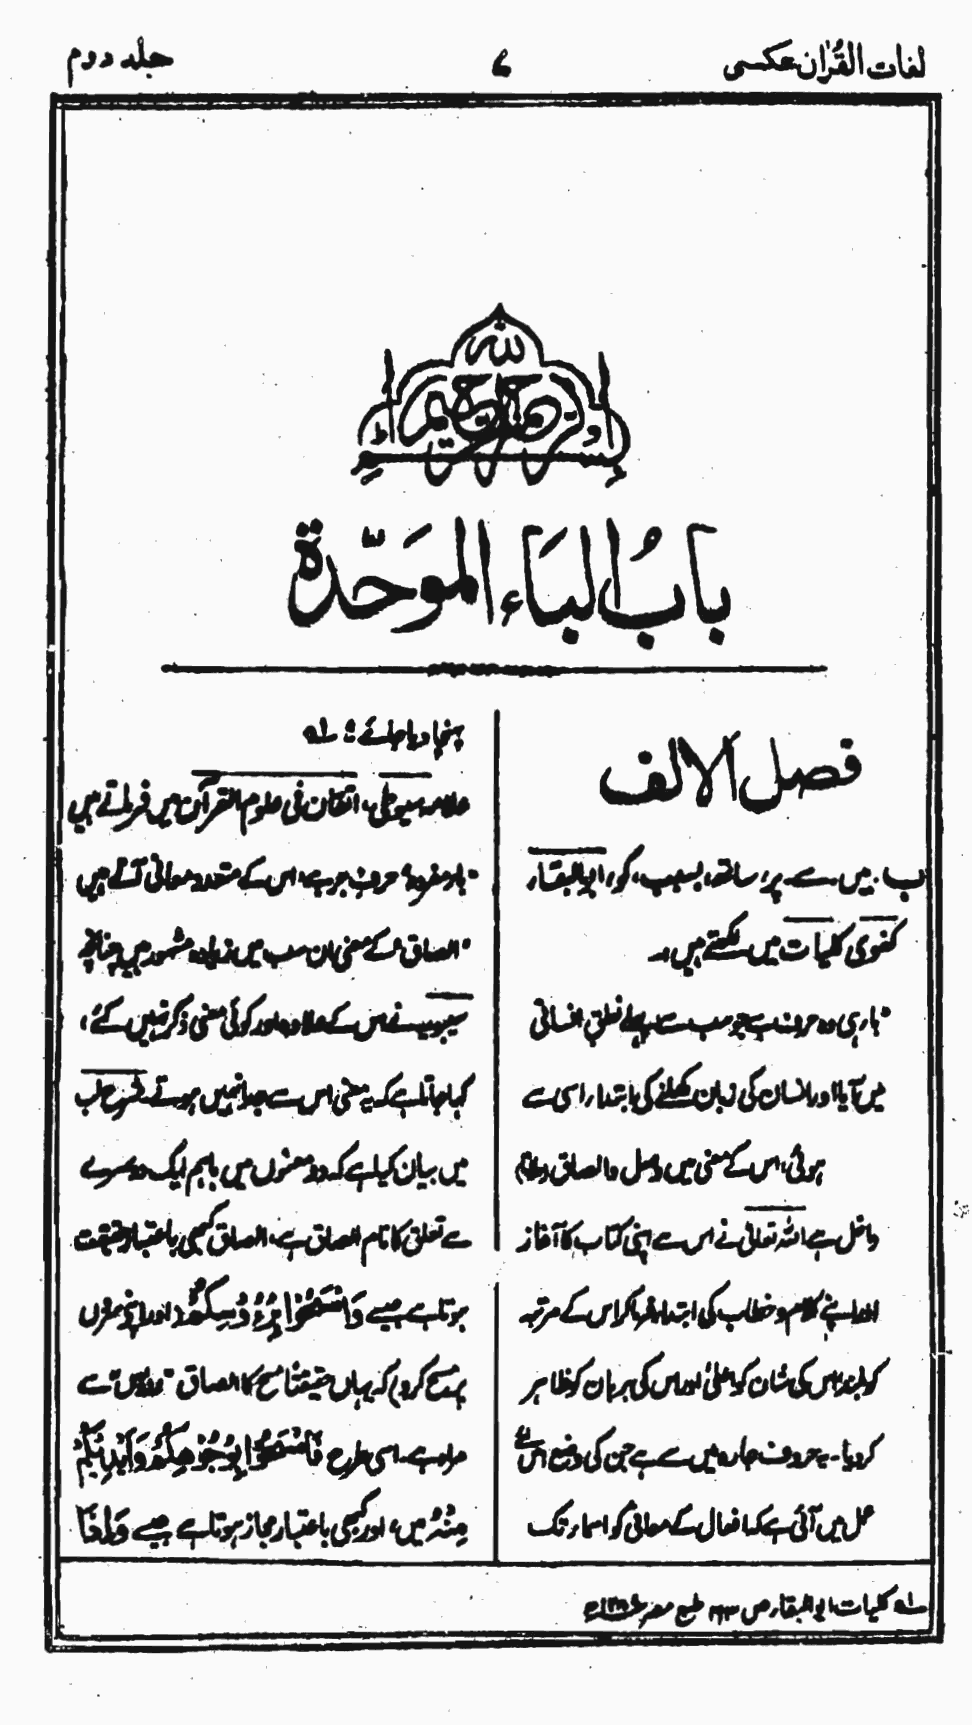 لغات القرآن عکسی
۷
جلد دوم
بسم الله الرحمن الرحیم
بابُ البَاء الموَحّدة
فصل الالف
ب. میں۔ سے۔ پر، ساتھ، بسبب، کو، ابوالبقار
کفوی کلیات میں لکھتے ہیں:۔
"بار ہی وہ حرف ہے جو سب سے پہلے نطقِ انسانی
میں آیا اور انسان کی زبان کھلنے کی ابتداء اسی سے
ہوئی، اس کے معنی میں وصل والصاق
داخل ہے اللہ تعالیٰ نے اس سے اپنی کتاب کا آغاز
اور اپنے کلام و خطاب کی ابتدا فرماکر اس کے مرتبہ
کو بلند، اس کی شان کو اعلیٰ اور اس کی برہان کو ظاہر
کردیا۔ یہ حروف جارہ میں سے ہے جن کی وضع اس لئے
عمل میں آئی ہے کہ افعال کے معانی کو اسماء تک
پہنچا دیا جائے؛ ؎۱
علامہ سیوطی، اتقان فی علوم القرآن میں فرماتے ہیں
"بار مفردہ، حرف جر ہے، اس کے متعدد معانی آتے ہیں
"الصاق، کے معنی ان سب میں زیادہ مشہور ہیں چنانچہ
سیبویہ نے اس کے علاوہ اور کوئی معنی ذکر نہیں کئے،
کہا جاتا ہے کہ یہ معنی اس سے جدا نہیں ہوتے۔ شرح لب
میں بیان کیا ہے کہ دو معنوں میں باہم ایک دوسرے
سے تعلق کا نام الصاق ہے، الصاق کبھی باعتبار حقیقت
ہوتا ہے جیسے وَامْسَحُوْا بِرُءُوْسِكُمْ (اور اپنے سروں
پر مسح کرو) کہ یہاں حقیقتاً مسح کا الصاق "رؤس" سے
مراد ہے۔ اسی طرح فَامْسَحُوْا بِوُجُوْهِكُمْ وَاَيْدِيْكُمْ
مِنْهُ میں، اور کبھی باعتبار مجاز ہوتا ہے جیسے وَاِذَا
؎۱ کلیات ابوالبقار ص طبع مصر